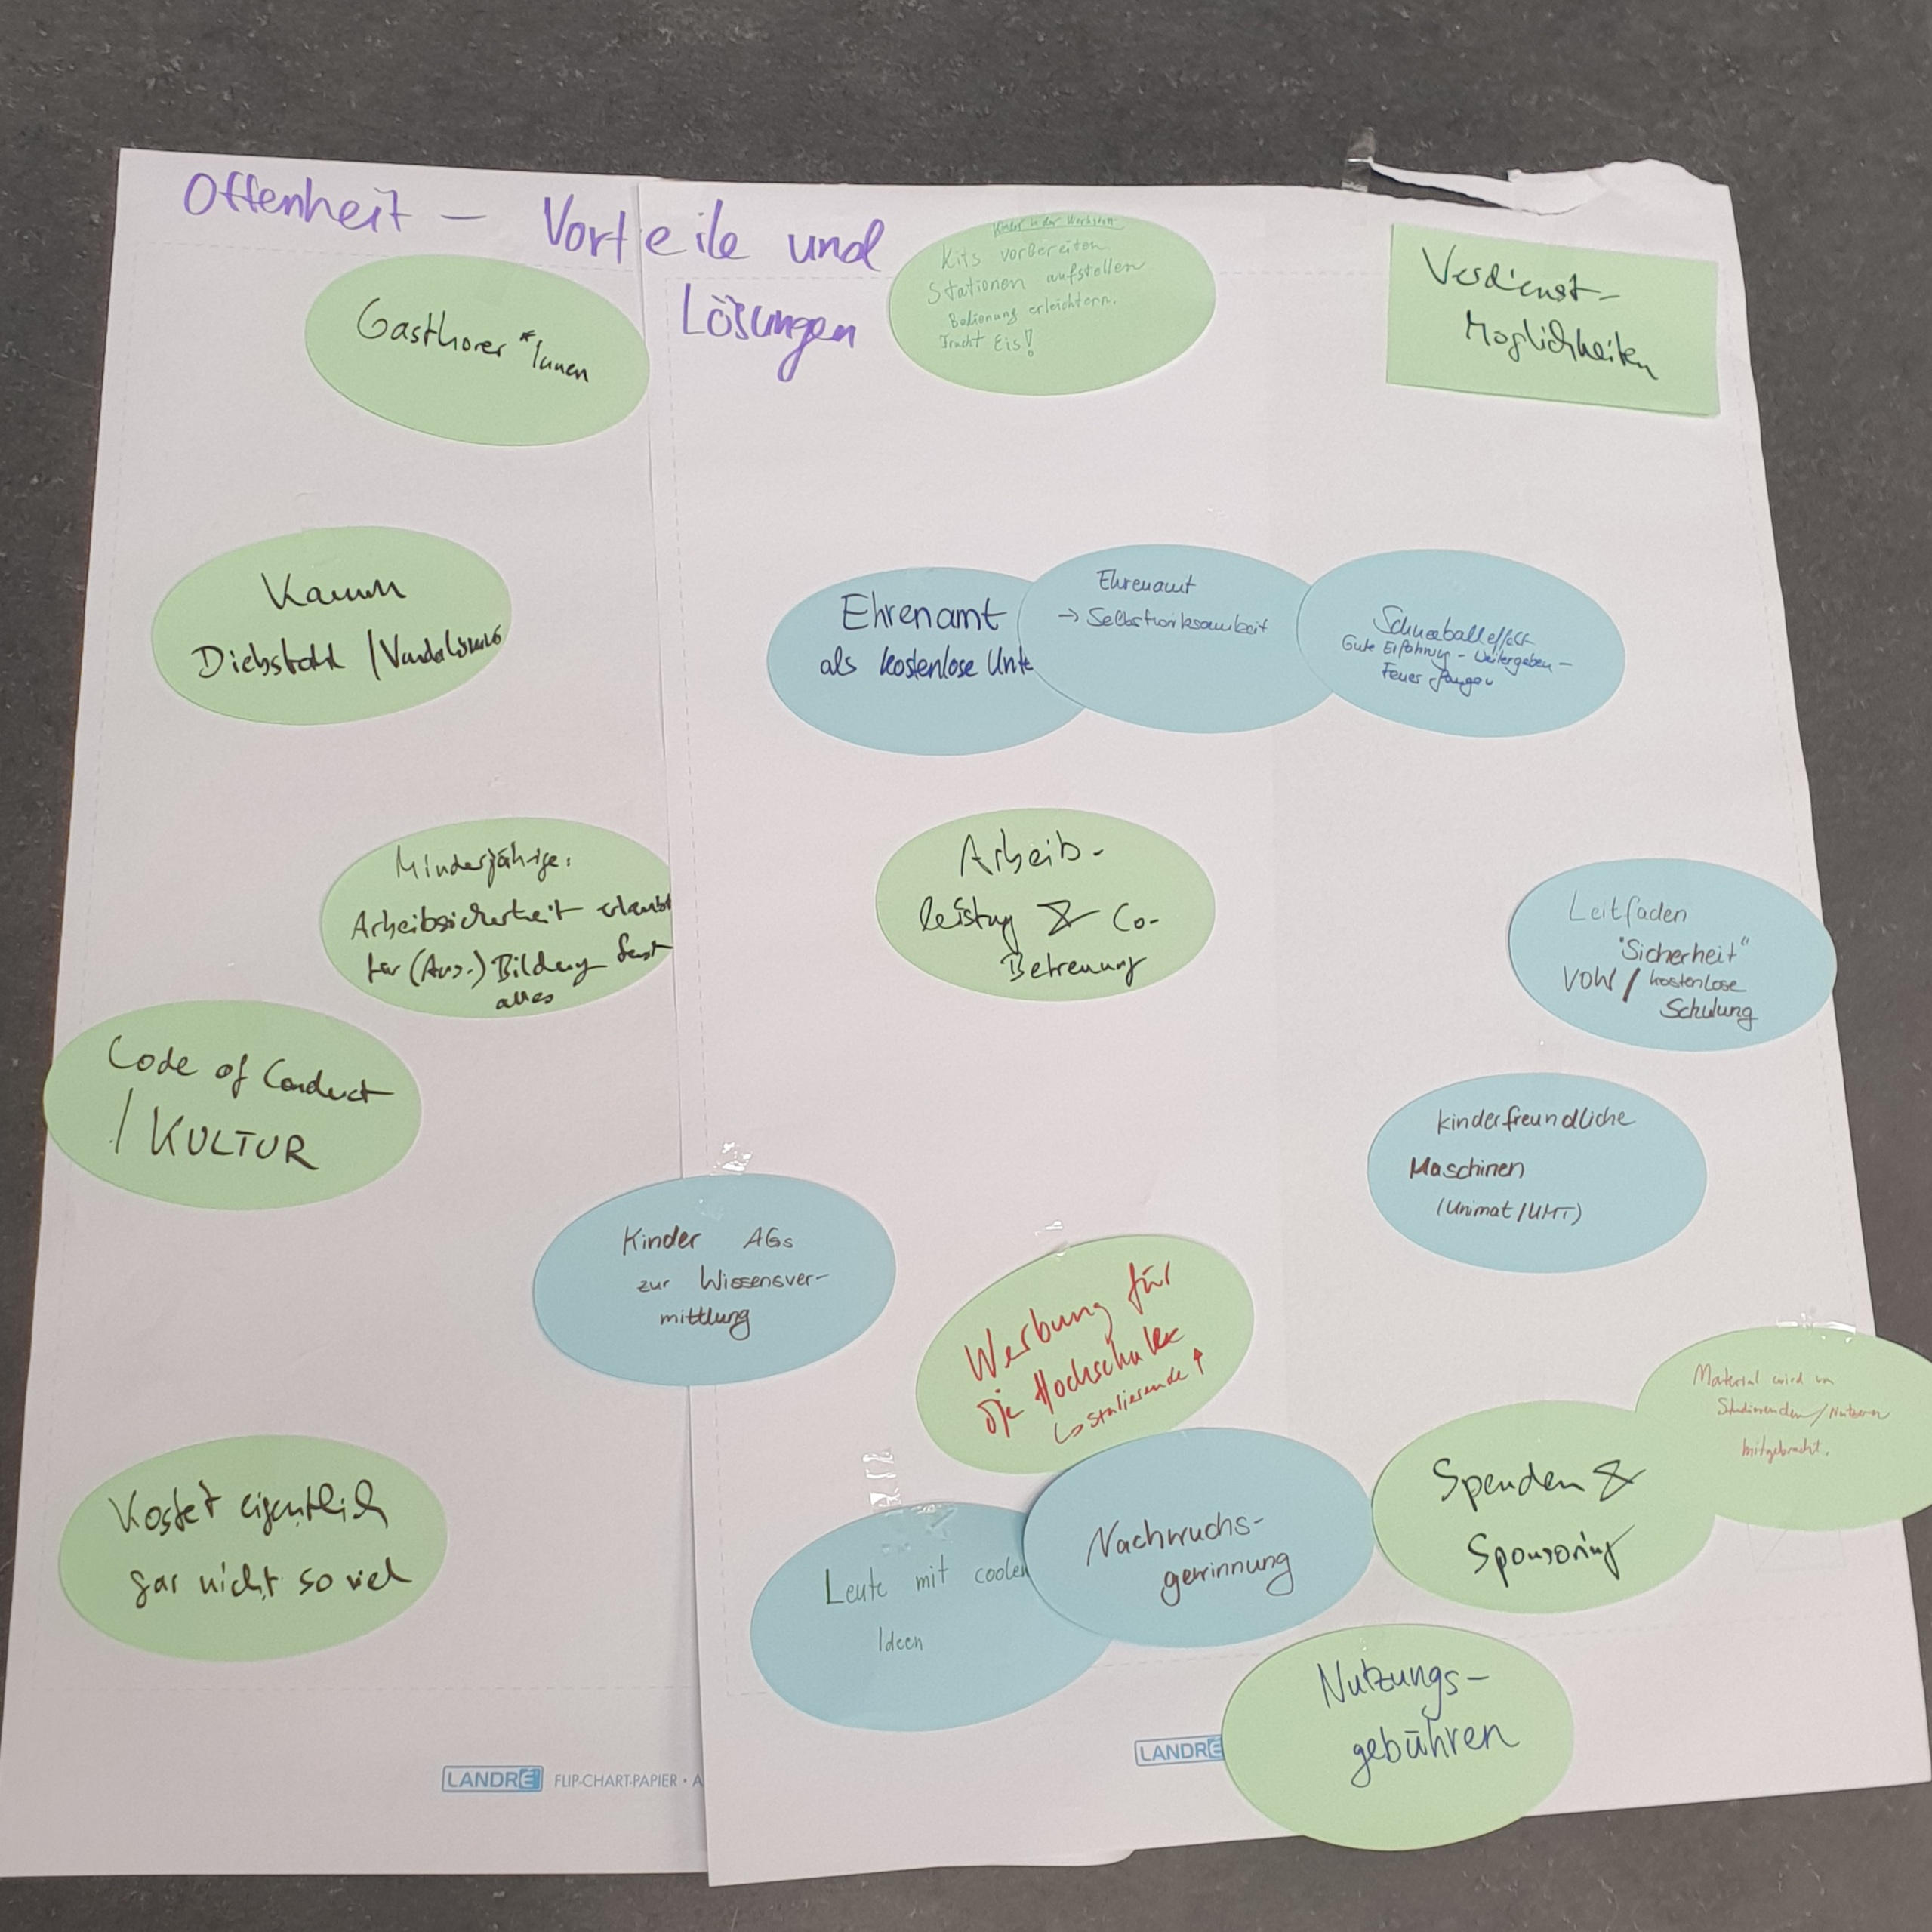 Offenheit - Vorteile und
Lösungen
Kinder in der Werkstatt
Kits vorbereiten
Stationen aufstellen
Bedienung erleichtern.
Eis!
Verdienst-
Möglichkeiten
Gasthörer*Innen
Kaum
Diebstahl / Vandalismus
Ehrenamt
als kostenlose Unte
Ehrenamt
→ Selbstwirksamkeit
Schneeballeffekt
Gute Erfahrung - Weitergeben -
Feuer fangen
Minderjährige:
Arbeitssicherheit erlaubt
für (Aus-) Bildung fast
alles
Arbeits-
leistung & Co-
Betreuung
Leitfaden
"Sicherheit"
VOW / kostenlose
Schulung
Code of Conduct
/ KULTUR
kinderfreundliche
Maschinen
(Unimat/UMT)
Kinder AGs
zur Wissensver-
mittlung
Werbung für
die Hochschule
↳ Studierende ↑
Material wird von
Studierenden/Nutzern
mitgebracht.
Kostet eigentlich
gar nicht so viel
Spenden &
Sponsoring
Nachwuchs-
gewinnung
Leute mit coolen
Ideen
Nutzungs-
gebühren
LANDRÉ FLIP-CHART-PAPIER • A
LANDRÉ